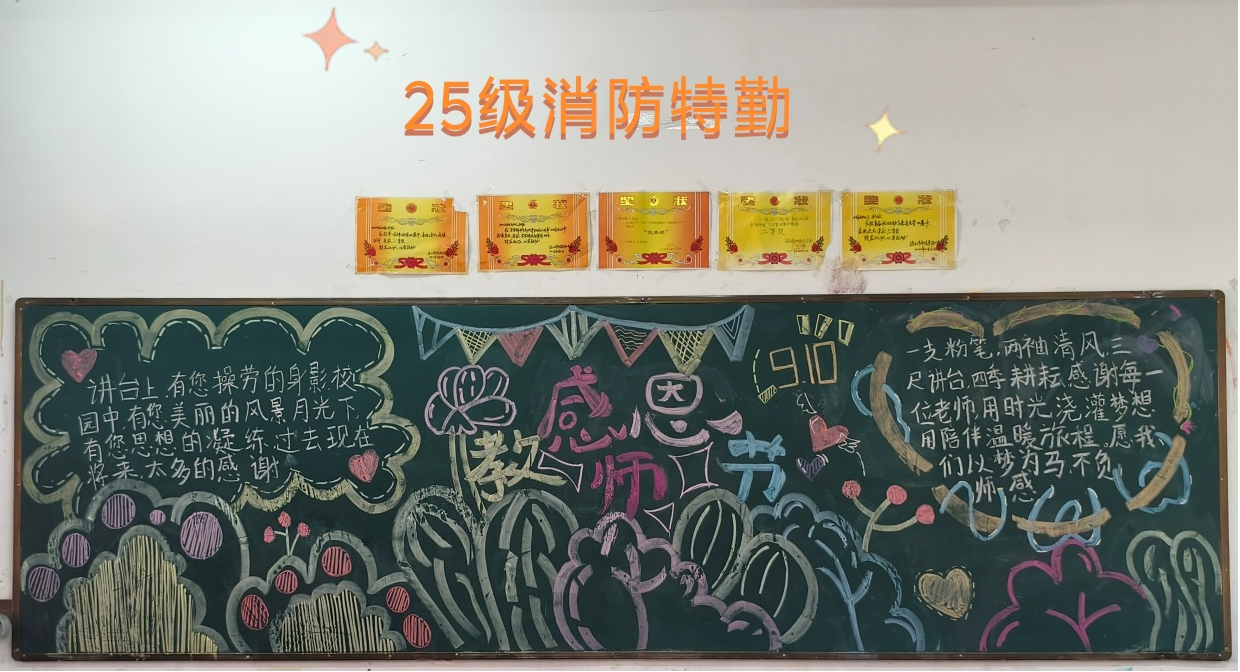 25级消防特勤
奖 状
奖 状
奖 状
奖 状
二等奖
奖 状
讲台上,有您操劳的身影,校
园中,有您美丽的风景,月光下,
有您思想的凝练,过去现在
将来,太多的感谢
感恩
教师节
9.10
一支粉笔,两袖清风,三
尺讲台,四季耕耘,感谢每一
位老师,用时光浇灌梦想
用陪伴温暖旅程,愿我
们以梦为马不负
师恩